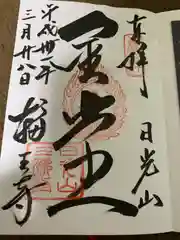 奉拝
日光山
金堂
平成卅一年
三月廿八日
輪王寺